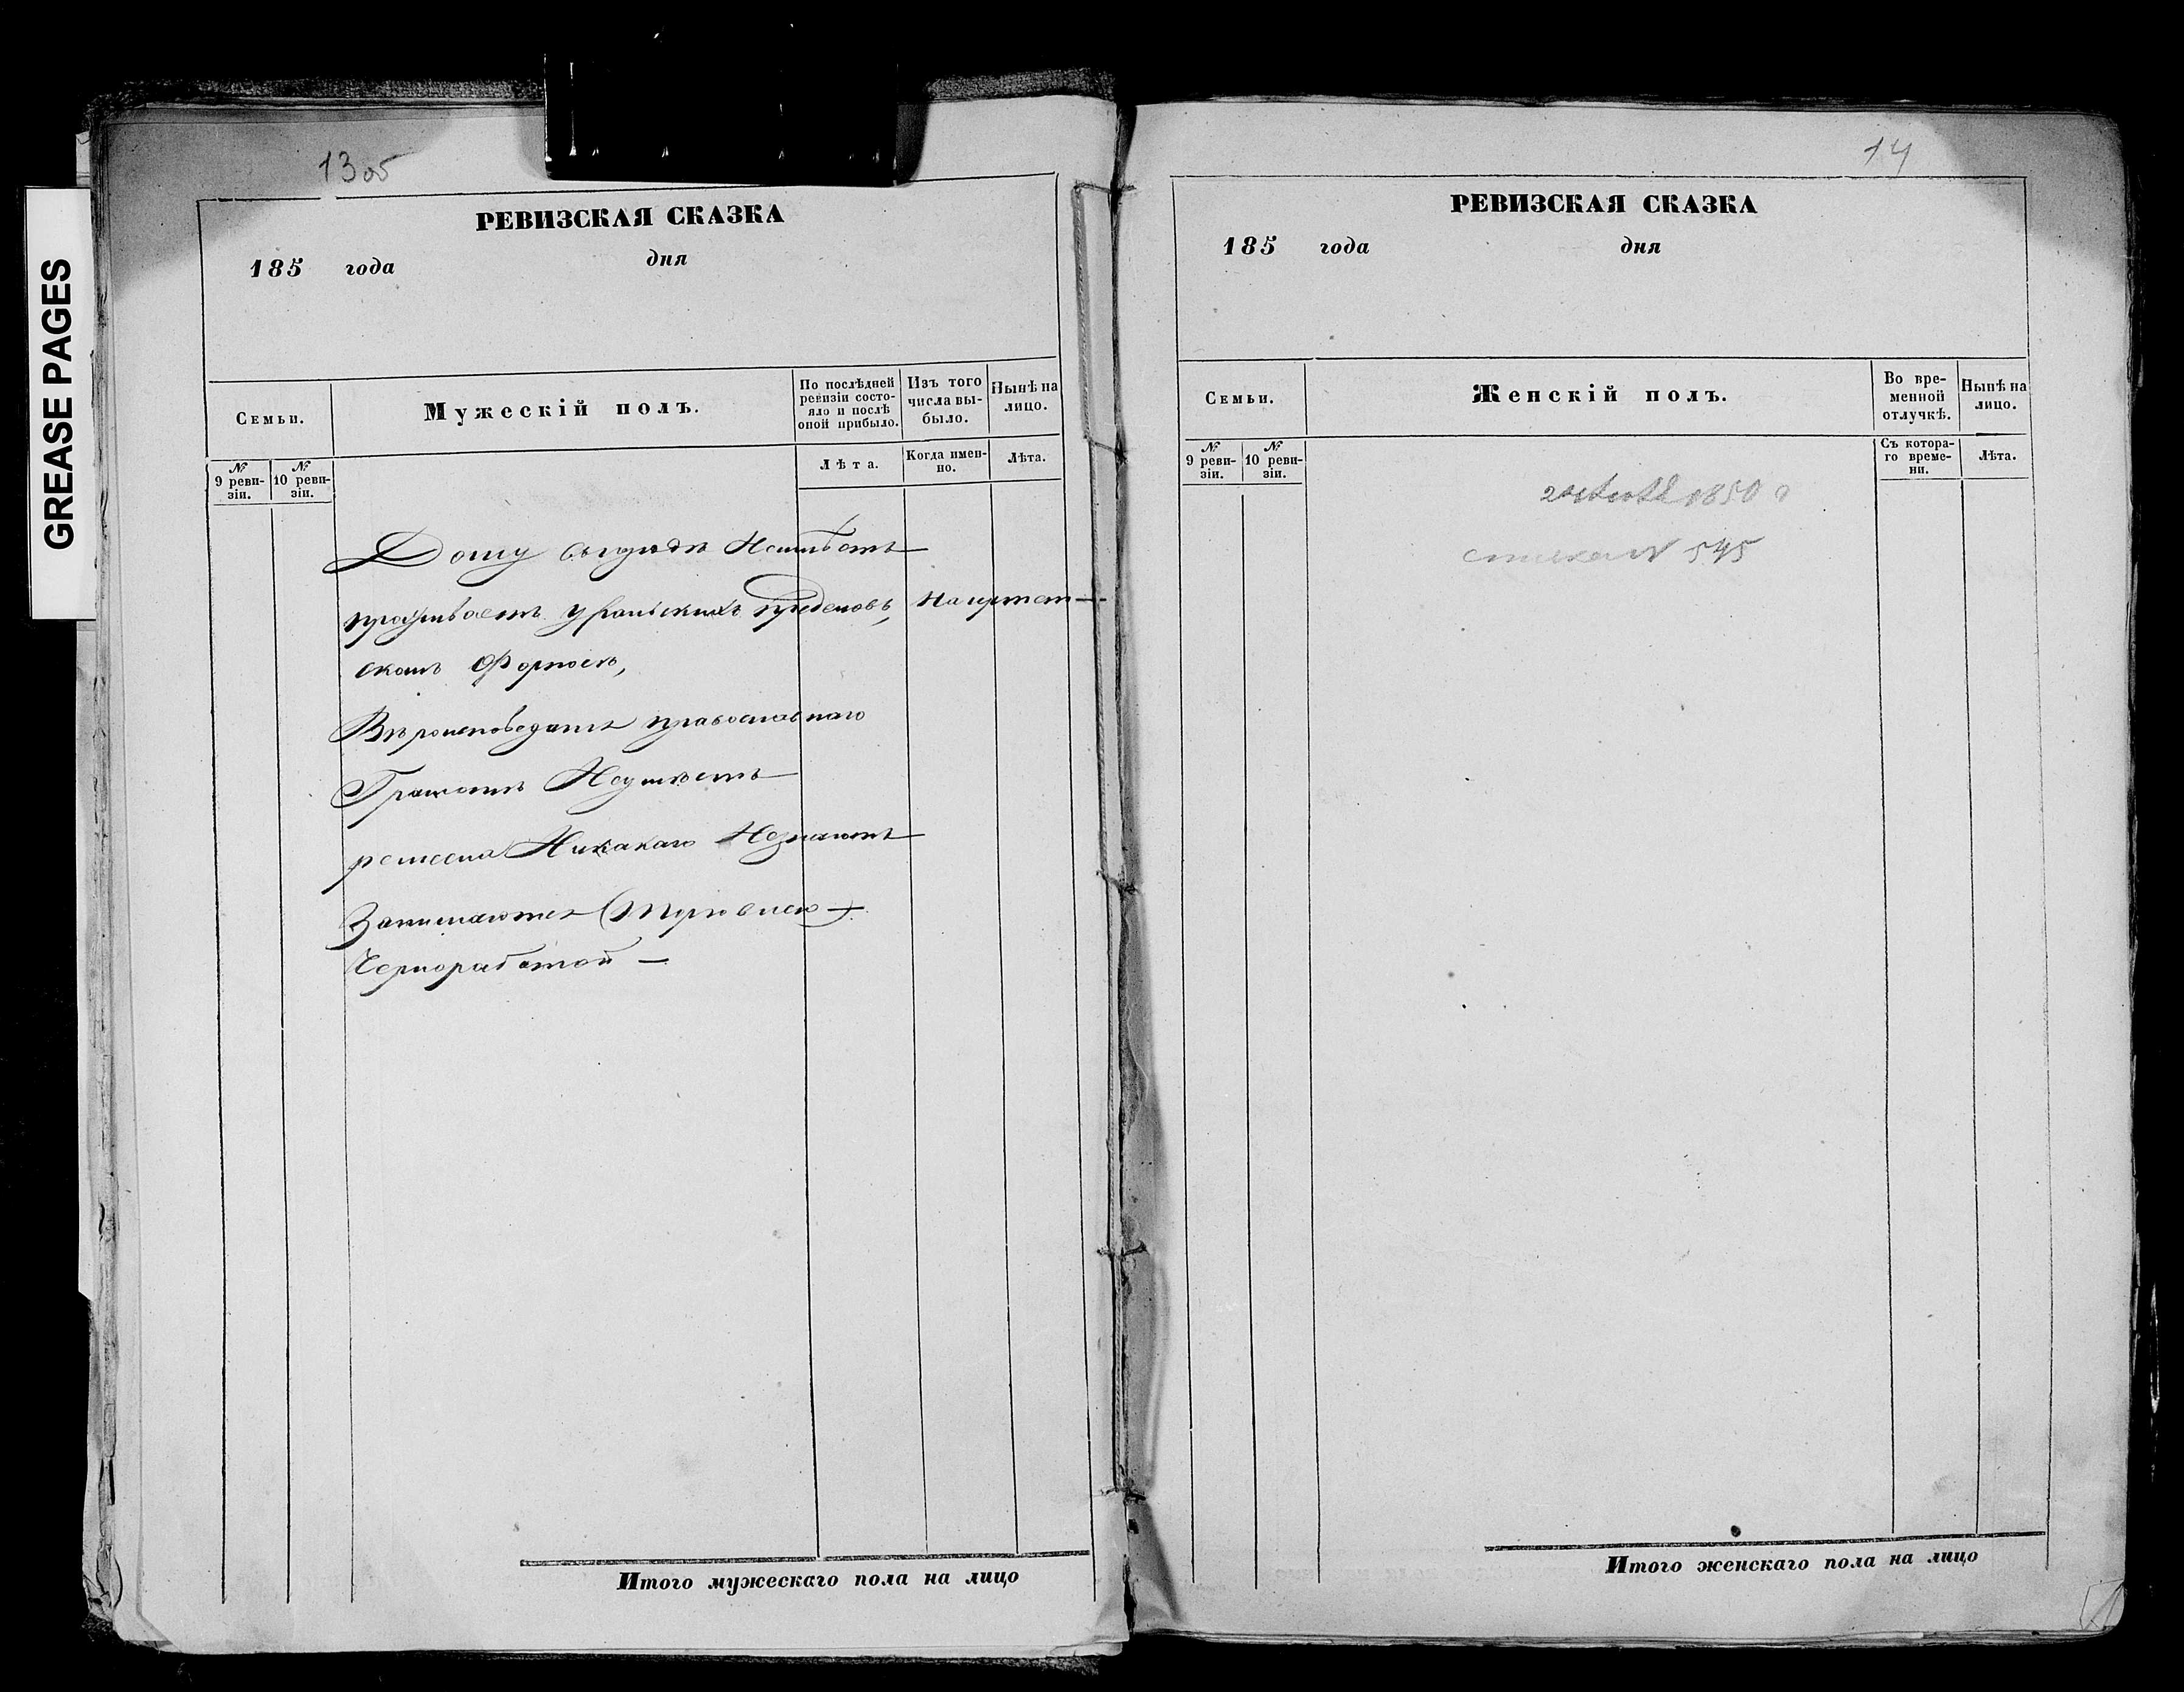 GREASE PAGES
13об
РЕВИЗСКАЯ СКАЗКА
185 года дня
Семьи.
Мужескій полъ.
По послѣдней ревизіи состояло и послѣ оной прибыло.
Изъ того числа выбыло.
Нынѣ на лицо.
№ 9 ревизіи.
№ 10 ревизіи.
Лѣта.
Когда именно.
Лѣта.
Дому
проживаетъ Уральскихъ пределовъ,
скомъ Форпостѣ,
Вѣроисповеданія православнаго
Грамотѣ Неумѣетъ
ремесла Никакаго Незнаютъ
Занимаются
Чернработой —
Итого мужескаго пола на лицо
14
РЕВИЗСКАЯ СКАЗКА
185 года дня
Семьи.
Женскій полъ.
Во временной отлучкѣ.
Нынѣ на лицо.
№ 9 ревизіи.
№ 10 ревизіи.
Съ котораго времени.
Лѣта.
1850
545
Итого женскаго пола на лицо